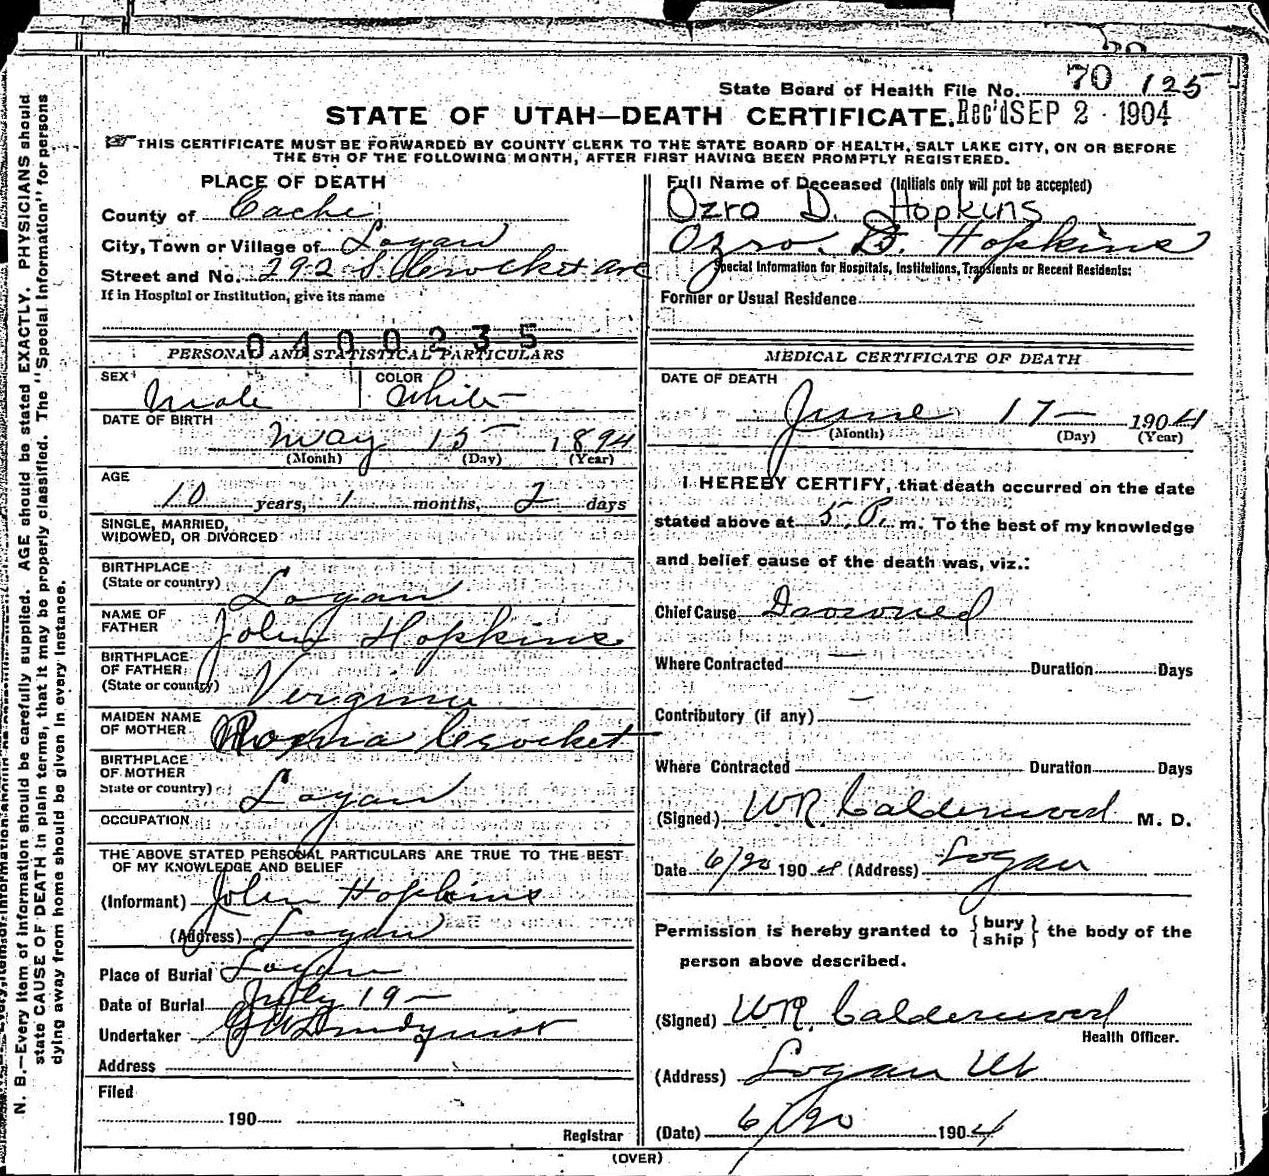 State Board of Health File No. 70 125
STATE OF UTAH—DEATH CERTIFICATE. Rec'd SEP 2 1904
THIS CERTIFICATE MUST BE FORWARDED BY COUNTY CLERK TO THE STATE BOARD OF HEALTH, SALT LAKE CITY, ON OR BEFORE
THE 5TH OF THE FOLLOWING MONTH, AFTER FIRST HAVING BEEN PROMPTLY REGISTERED.
PLACE OF DEATH
County of Cache
City, Town or Village of Logan
Street and No. 292 S Crocket ave
If in Hospital or Institution, give its name
0400235
PERSONAL AND STATISTICAL PARTICULARS
SEX Male COLOR White
DATE OF BIRTH
May 15 1894
(Month) (Day) (Year)
AGE
10 years, 1 months, 2 days
SINGLE, MARRIED,
WIDOWED, OR DIVORCED
BIRTHPLACE
(State or country) Logan
NAME OF
FATHER John Hopkins
BIRTHPLACE
OF FATHER
(State or country) Verginia
MAIDEN NAME
OF MOTHER Crocket
BIRTHPLACE
OF MOTHER
State or country) Logan
OCCUPATION
THE ABOVE STATED PERSONAL PARTICULARS ARE TRUE TO THE BEST
OF MY KNOWLEDGE AND BELIEF
(Informant) John Hopkins
(Address) Logan
Place of Burial Logan
Date of Burial July 19
Undertaker Lundquist
Address
Filed
190
Registrar
Full Name of Deceased (Initials only will not be accepted)
Ozro D. Hopkins
Ozro D. Hopkins
Special Information for Hospitals, Institutions, Transients or Recent Residents:
Former or Usual Residence
MEDICAL CERTIFICATE OF DEATH
DATE OF DEATH
June 17 1904
(Month) (Day) (Year)
I HEREBY CERTIFY, that death occurred on the date
stated above at 5 P. m. To the best of my knowledge
and belief cause of the death was, viz.:
Chief Cause Drowned
Where Contracted — Duration Days
Contributory (if any) —
Where Contracted Duration Days
(Signed) WR Calderwood M. D.
Date 6/20 1904 (Address) Logan
Permission is hereby granted to {bury
ship} the body of the
person above described.
(Signed) WR. Calderwood
Health Officer.
(Address) Logan Ut
(Date) 6/20 1904
(OVER)
N. B.—Every item of information should be carefully supplied. AGE should be stated EXACTLY. PHYSICIANS should
state CAUSE OF DEATH in plain terms, that it may be properly classified. The "Special Information" for persons
dying away from home should be given in every instance.